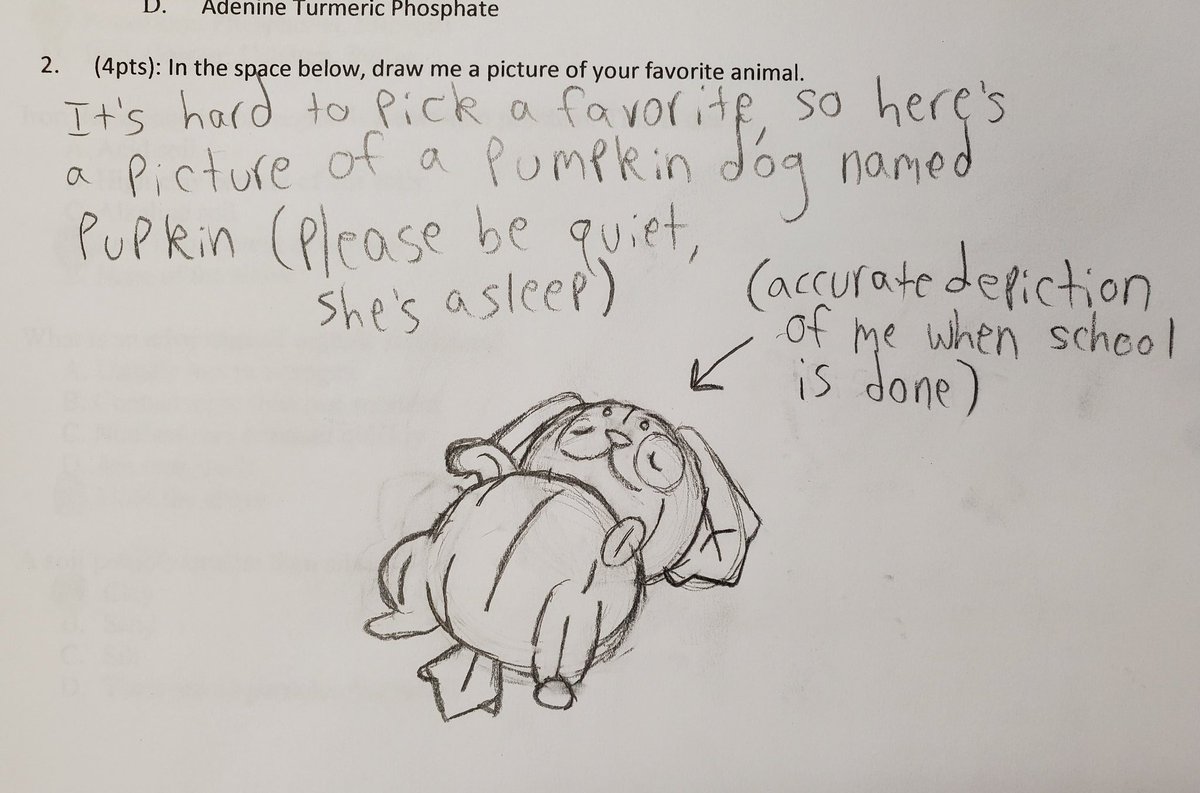 D. Adenine Turmeric Phosphate
2. (4pts): In the space below, draw me a picture of your favorite animal.
It's hard to pick a favorite, so here's
a picture of a pumpkin dog named
Pupkin (please be quiet,
she's asleep)
(accurate depiction
of me when school
is done)